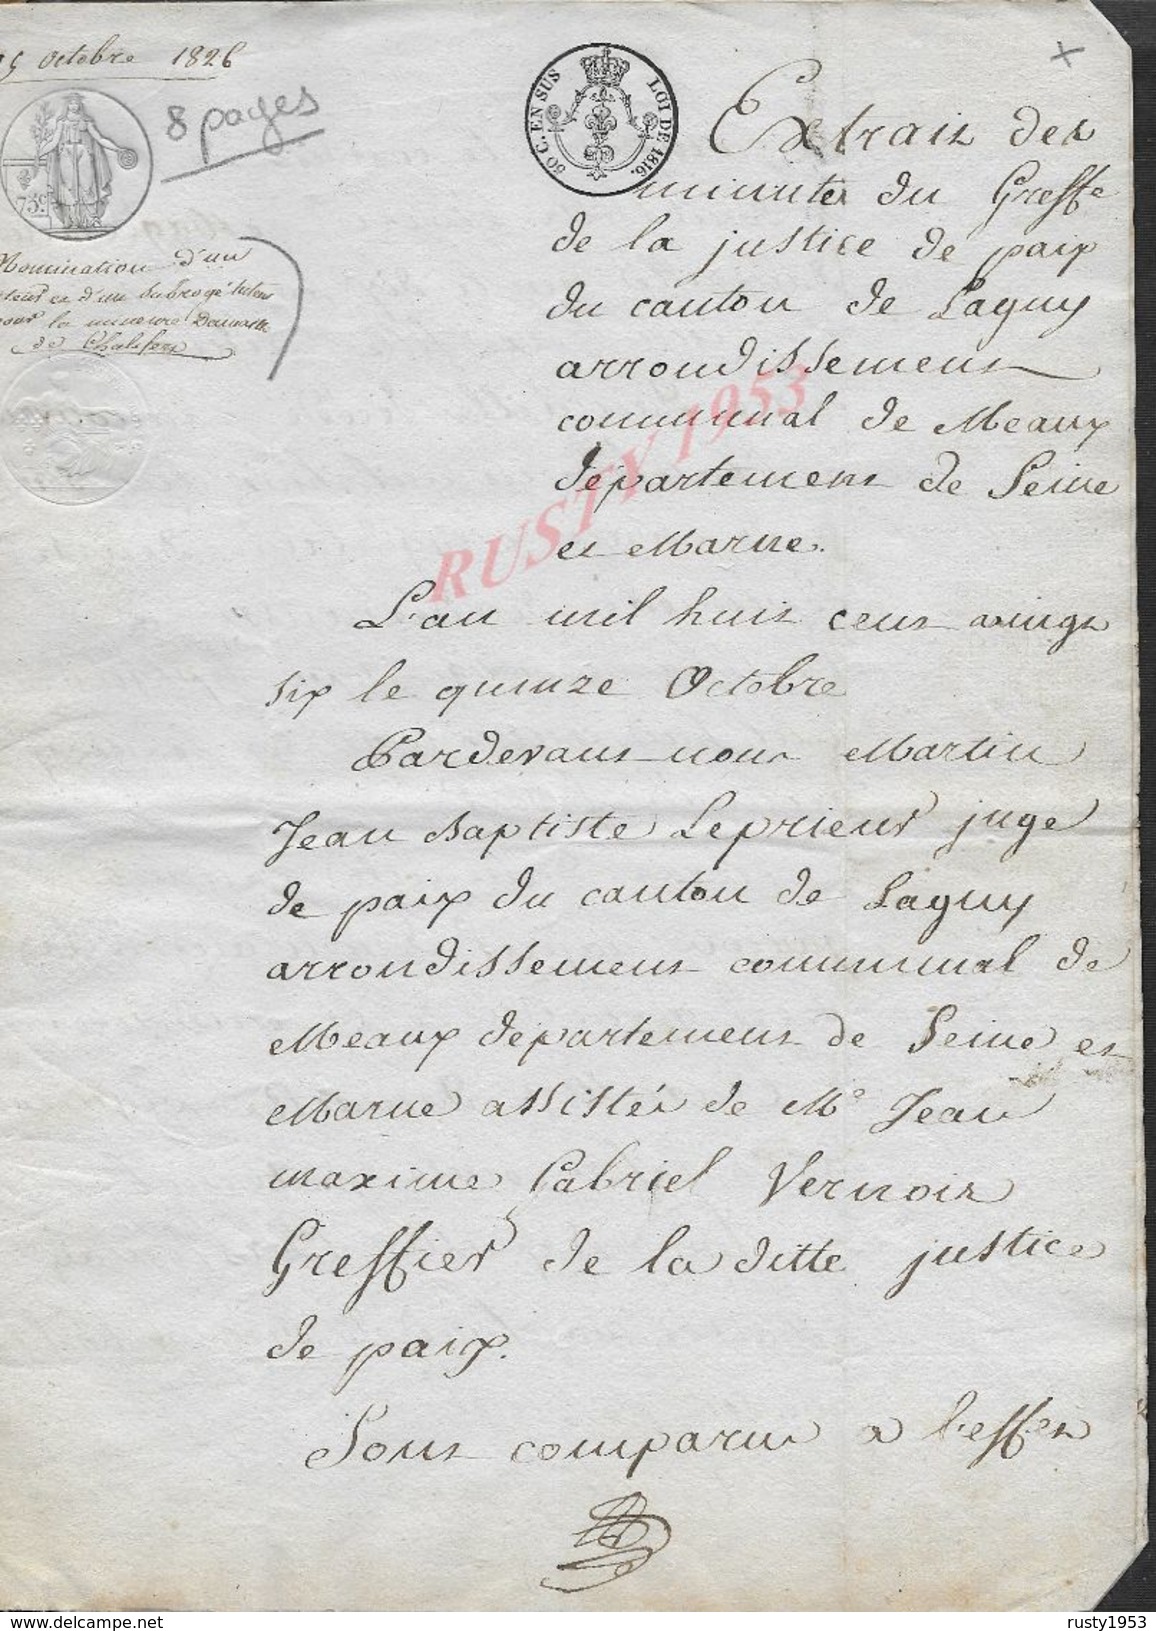 15 Octobre 1826
8 pages
75c.
Nomination d'un
tuteur et d'un subrogé tuteur
pour la mineure
de Chalifert
50 C. EN SUS LOI DE 1816.
Extrait des
minutes du Greffe
de la justice de paix
du canton de Lagny
arrondissement
communal de Meaux
département de Seine
et Marne.
L'an mil huit cent vingt
six le quinze Octobre
Pardevant nous Martin
Jean Baptiste Leprieur juge
de paix du canton de Lagny
arrondissement communal de
Meaux département de Seine et
Marne assisté de Me Jean
maxime Gabriel Vernois
Greffier de la ditte justice
de paix.
Sont comparu a l'effet
RUSTY 1953
delcampe.net
rusty1953